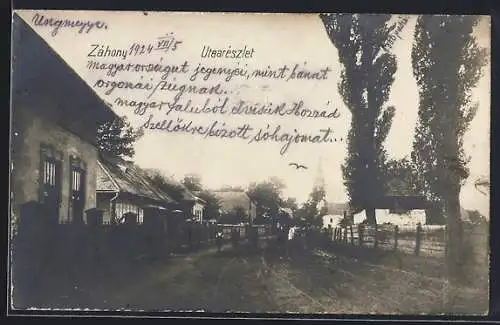 Ungmegye.
Záhony 1924 VII/5 Utcarészlet
magyarországut jegenyéi, mint bánat
orgonái zúgnak...
magyar faluból elvisik Hozzád
Szellőkre bízott sóhajomat...